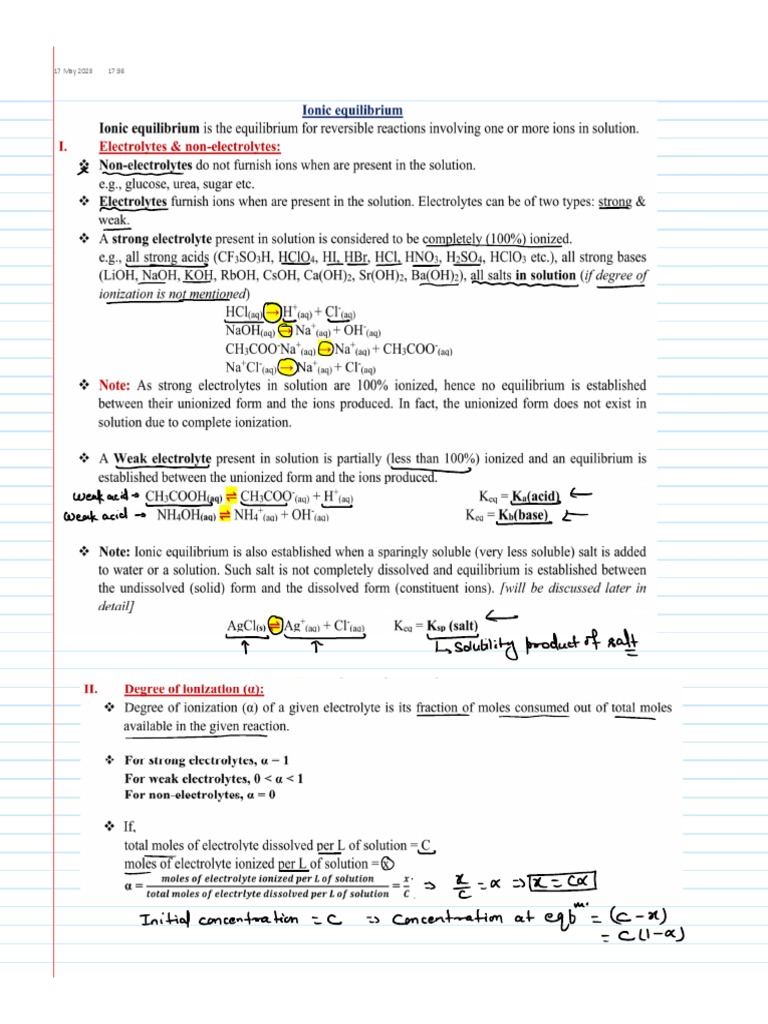 17 May 2023 17:98
Ionic equilibrium
Ionic equilibrium is the equilibrium for reversible reactions involving one or more ions in solution.
I. Electrolytes & non-electrolytes:
❖ Non-electrolytes do not furnish ions when are present in the solution.
e.g., glucose, urea, sugar etc.
❖ Electrolytes furnish ions when are present in the solution. Electrolytes can be of two types: strong &
weak.
❖ A strong electrolyte present in solution is considered to be completely (100%) ionized.
e.g., all strong acids (CF₃SO₃H, HClO₄, HI, HBr, HCl, HNO₃, H₂SO₄, HClO₃ etc.), all strong bases
(LiOH, NaOH, KOH, RbOH, CsOH, Ca(OH)₂, Sr(OH)₂, Ba(OH)₂), all salts in solution (if degree of
ionization is not mentioned)
HCl(aq) → H⁺(aq) + Cl⁻(aq)
NaOH(aq) → Na⁺(aq) + OH⁻(aq)
CH₃COO⁻Na⁺(aq) → Na⁺(aq) + CH₃COO⁻(aq)
Na⁺Cl⁻(aq) → Na⁺(aq) + Cl⁻(aq)
❖ Note: As strong electrolytes in solution are 100% ionized, hence no equilibrium is established
between their unionized form and the ions produced. In fact, the unionized form does not exist in
solution due to complete ionization.
❖ A Weak electrolyte present in solution is partially (less than 100%) ionized and an equilibrium is
established between the unionized form and the ions produced.
weak acid → CH₃COOH(aq) ⇌ CH₃COO⁻(aq) + H⁺(aq) Keq = Ka(acid) ←
weak acid → NH₄OH(aq) ⇌ NH₄⁺(aq) + OH⁻(aq) Keq = Kb(base) ←
❖ Note: Ionic equilibrium is also established when a sparingly soluble (very less soluble) salt is added
to water or a solution. Such salt is not completely dissolved and equilibrium is established between
the undissolved (solid) form and the dissolved form (constituent ions). [will be discussed later in
detail]
AgCl(s) ⇌ Ag⁺(aq) + Cl⁻(aq) Keq = Ksp (salt) ←
↳ Solubility product of salt
II. Degree of ionization (α):
❖ Degree of ionization (α) of a given electrolyte is its fraction of moles consumed out of total moles
available in the given reaction.
❖ For strong electrolytes, α = 1
For weak electrolytes, 0 < α < 1
For non-electrolytes, α = 0
❖ If,
total moles of electrolyte dissolved per L of solution = C
moles of electrolyte ionized per L of solution = x
α = moles of electrolyte ionized per L of solution / total moles of electrlyte dissolved per L of solution = x/C ⇒ x/C = α ⇒ x = Cα
Initial concentration = C ⇒ Concentration at eqbᵐ· = (C-x)
= C(1-α)